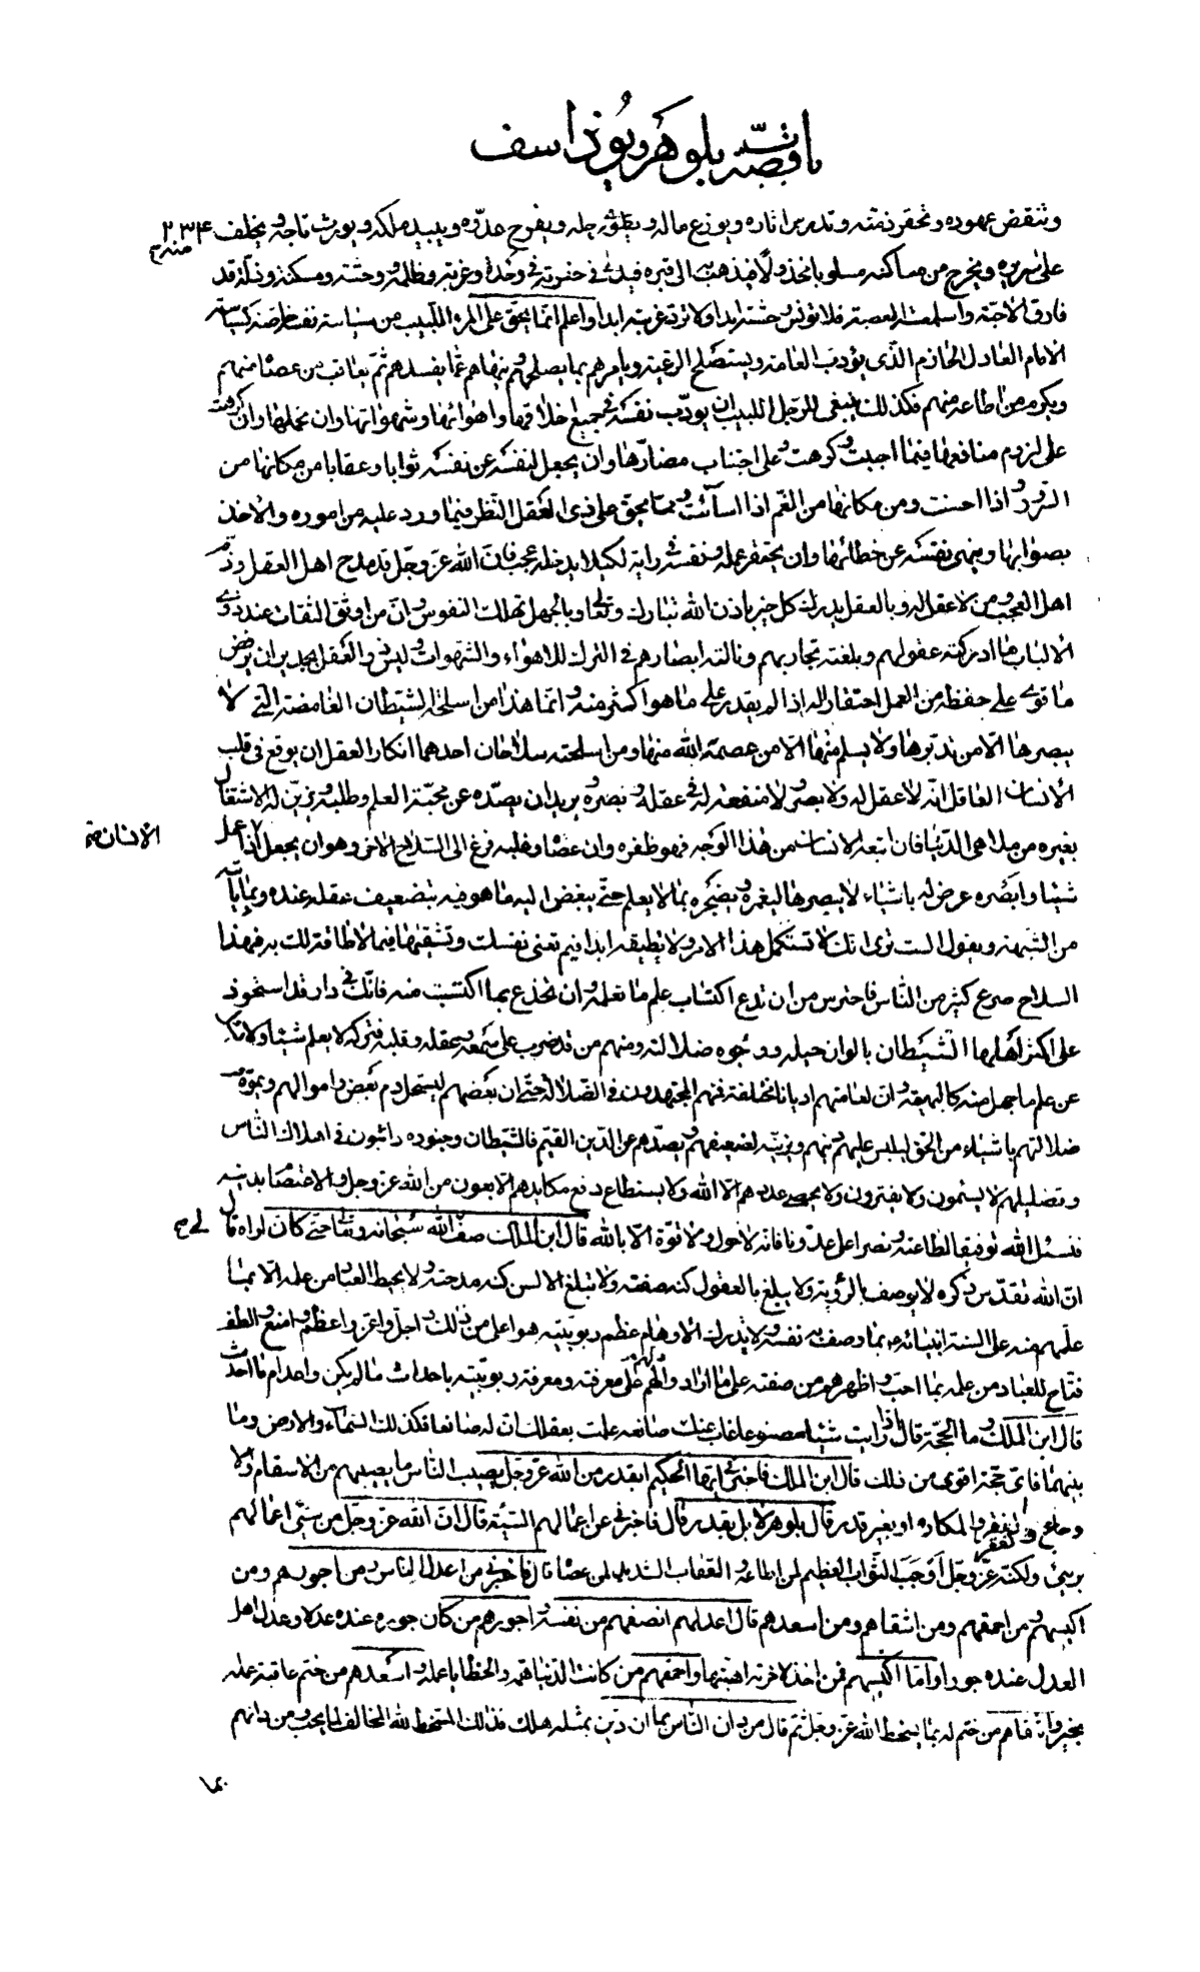 باب قصّة بلوهر ويوذاسف
وتنقض عهوده وتخفر ذمّته وتدرس اثاره ويوزع ماله ويطوى رحله ويفرح عدّوه ويبيد ملكه ويورث تاجه ويخلف ٢٣٤
على سريره ويخرج من مساكنه مسلوبا مخذولًا فيذهب به الى قبره فيدلى فى حفرته فى وحدة وغربة وظلمة ووحشة ومسكنة وذلّة قد
فارق الأحبّة واسلمته العصبة فلا تؤنس وحشته ابدا ولا تردّ غربته ابدا واعلم انّما يحقّ على المرء اللّبيب من سياسة نفسه خاصّة كسياسة
الامام العادل الحازم الّذى يؤدّب العامّة ويستصلح الرعيّة ويامرهم بما يصلحهم وينهاهم عمّا يفسدهم ثمّ يعاقب من عصاه منهم
ويكرم من اطاعه منهم فكذلك ينبغى للرّجل اللبيب ان يودّب نفسه فى جميع اخلاقها واهوائها وشهواتها وان يحملها وان كرهت
على لزوم منافعها فيما احبت وكرهت وعلى اجتناب مضارّها وان يجعل لنفسه عن نفسه ثوابا وعقابا من مكانها من
السّرور اذا احسنت ومن مكانها من الغّم اذا اسآئت وممّا يحقّ على ذى العقل النّظر فيما ورد عليه من اموره والأخذ
بصوابها وينهى نفسه عن خطائها وان يحتقر عمله ونفسه فى رايه لكيلا يدخله عجب فانّ الله عزّ وجلّ قد مدح اهل العقل وذمّ
اهل العجب ومن لا عقل له وبالعقل يدرك كل خير باذن الله تبارك وتعالى وبالجهل تهلك النفوس وانّ من اوثق الثقات عند ذوى
الألباب ما ادركته عقولهم وبلغته تجاربهم ونالته ابصارهم فى الترك للاهواء والشّهوات وليس ذو العقل بجدير ان يرفض
ما قوى على حفظه من العمل احتقارا له اذا لم يقدر على ما هو اكثر منه وانّما هذا من اسلحة الشيطان الغامضة الّتى لا
يبصرها الّا من تدبّرها ولا يسلم منها الّا من عصمه الله منها ومن اسلحته سلاحان احدهما انكار العقل ان يوقع فى قلب
الأنسان العاقل انّه لا عقل له ولا بصر ولا منفعة له فى عقله وبصره ويريد ان يصدّه عن محبّة العلم وطلبه ويزيّن له الاشتغال
بغيره من ملاهى الدّنيا فان اتبعه الانسان من هذا الوجه فهو ظفره وان عصاه وغلبه فزع الى السّلاح الأخر وهو ان يجعل اذا عمل
الانسان
شيئا وابصره عرض له باشياء لا يبصرها ليغمره ويضجره بما لا يعلم حتّى يبغض اليه ما هو فيه بتضعيف عقله عنده وبما يأتيه
من الشّبهة ويقول الست ترى انّك لا تستكمل هذا الامر ولا تطيقه ابدا فبم تعنى نفسك وتشقيها فيما لا طاقة لك به فبهذا
السلاح صرع كثير من النّاس فاحترس من ان تدع اكتساب علم ما تعلم وان تخدع عمّا اكتسبت منه فانّك فى دار قد استحوذ
على اكثر اهلها الشّيطان بالوان حيله ووجوه ضلالته ومنهم من قد ضرب على سمعه وعقله وقلبه فتركه لا يعلم شيئا ولا يسئل
عن علم ما جهل منه كالبهيمة وانّ لعامّتهم اديانا مختلفة فمنهم المجتهدون فى الضّلالة حتّى ان بعضهم ليستحل دم بعض واموالهم ويموّه
ضلالتهم باشياء من الحّق ليلبس عليهم دينهم ويزيّنه لضعيفهم ويصدّهم عن الدّين القيّم فالشّيطان وجنوده دائبون فى اهلاك النّاس
وتضليلهم لا يسئمون ولا يفترون ولا يحصى عددهم الّا الله ولا يستطاع دفع مكايدهم الّا بعون من الله عزّ وجل والاعتصام بدينه
فنسئل الله توفيقا لطاعته ونصرا على عدّونا فانه لا حول ولا قوّة الّا بالله قال ابن الملك صف لى الله سبحانه وتعالى حتّى كانّى اراه قال
انّ الله تقدّس ذكره لا يوصف بالرؤية ولا يبلغ بالعقول كنه صفته ولا تبلغ الالسن كنه مدحته ولا يحيط العباد من علمه الّا بما
علّمهم منه على السنة انبيائه بما وصف به نفسه ولا تدرك الاوهام عظم ربوبيّته هو اعلى من ذلك واجلّ واعزّ واعظم وامنع والطف
فتاح للعباد من علمه بما احبّ واظهرهم من صفته على ما اراد ودلّهم على معرفته ومعرفة ربوبيّته باحداث ما لم يكن واعدام ما احدث
قال ابن الملك وما الحجّة قال اذا رايت شيئا مصنوعا غاب عنك صانعه علمت بعقلك انّ له صانعا فكذلك السّماء والارض وما
بينهما فاىّ حجّة اقوى من ذلك قال ابن الملك فاخبرنى ايّها الحكيم ابقدر من الله عزّ وجلّ يصيب النّاس ما يصيبهم من الاسقام والا
وجاع والفقر والمكاره او بغير قدر قال بلوهر لا بل بقدر قال فاخبرنى عن اعمالهم السّيئة قال انّ الله عزّ وجلّ من سيّئ اعمالهم
برىء ولكنّه عزّ وجلّ اوجب الثّواب العظيم لمن اطاعه والعقاب الشديد لمن عصاه قال فاخبرنى من اعدل النّاس ومن اجورهم ومن
اكيسهم ومن احمقهم ومن اشقاهم ومن اسعدهم قال اعدلهم انصفهم من نفسه واجورهم من كان جوره عنده عدلا وعدل اهل
العدل عنده جورا وامّا اكيسهم فمن اخذ لاخرته اهبتها واحمقهم من كانت الدّنيا همّه والخطايا عمله واسعدهم من ختم عاقبة عمله
بخير واشقاهم من ختم له بما يسخط الله عزّ وجلّ ثمّ قال من دان النّاس بما ان دين بمثله هلك فذلك المسخط لله المخالف لما يحبّ ومن دانهم
بما